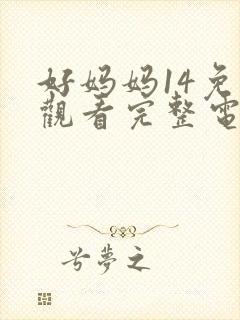 好妈妈14免
觀看完整電
兮夢之